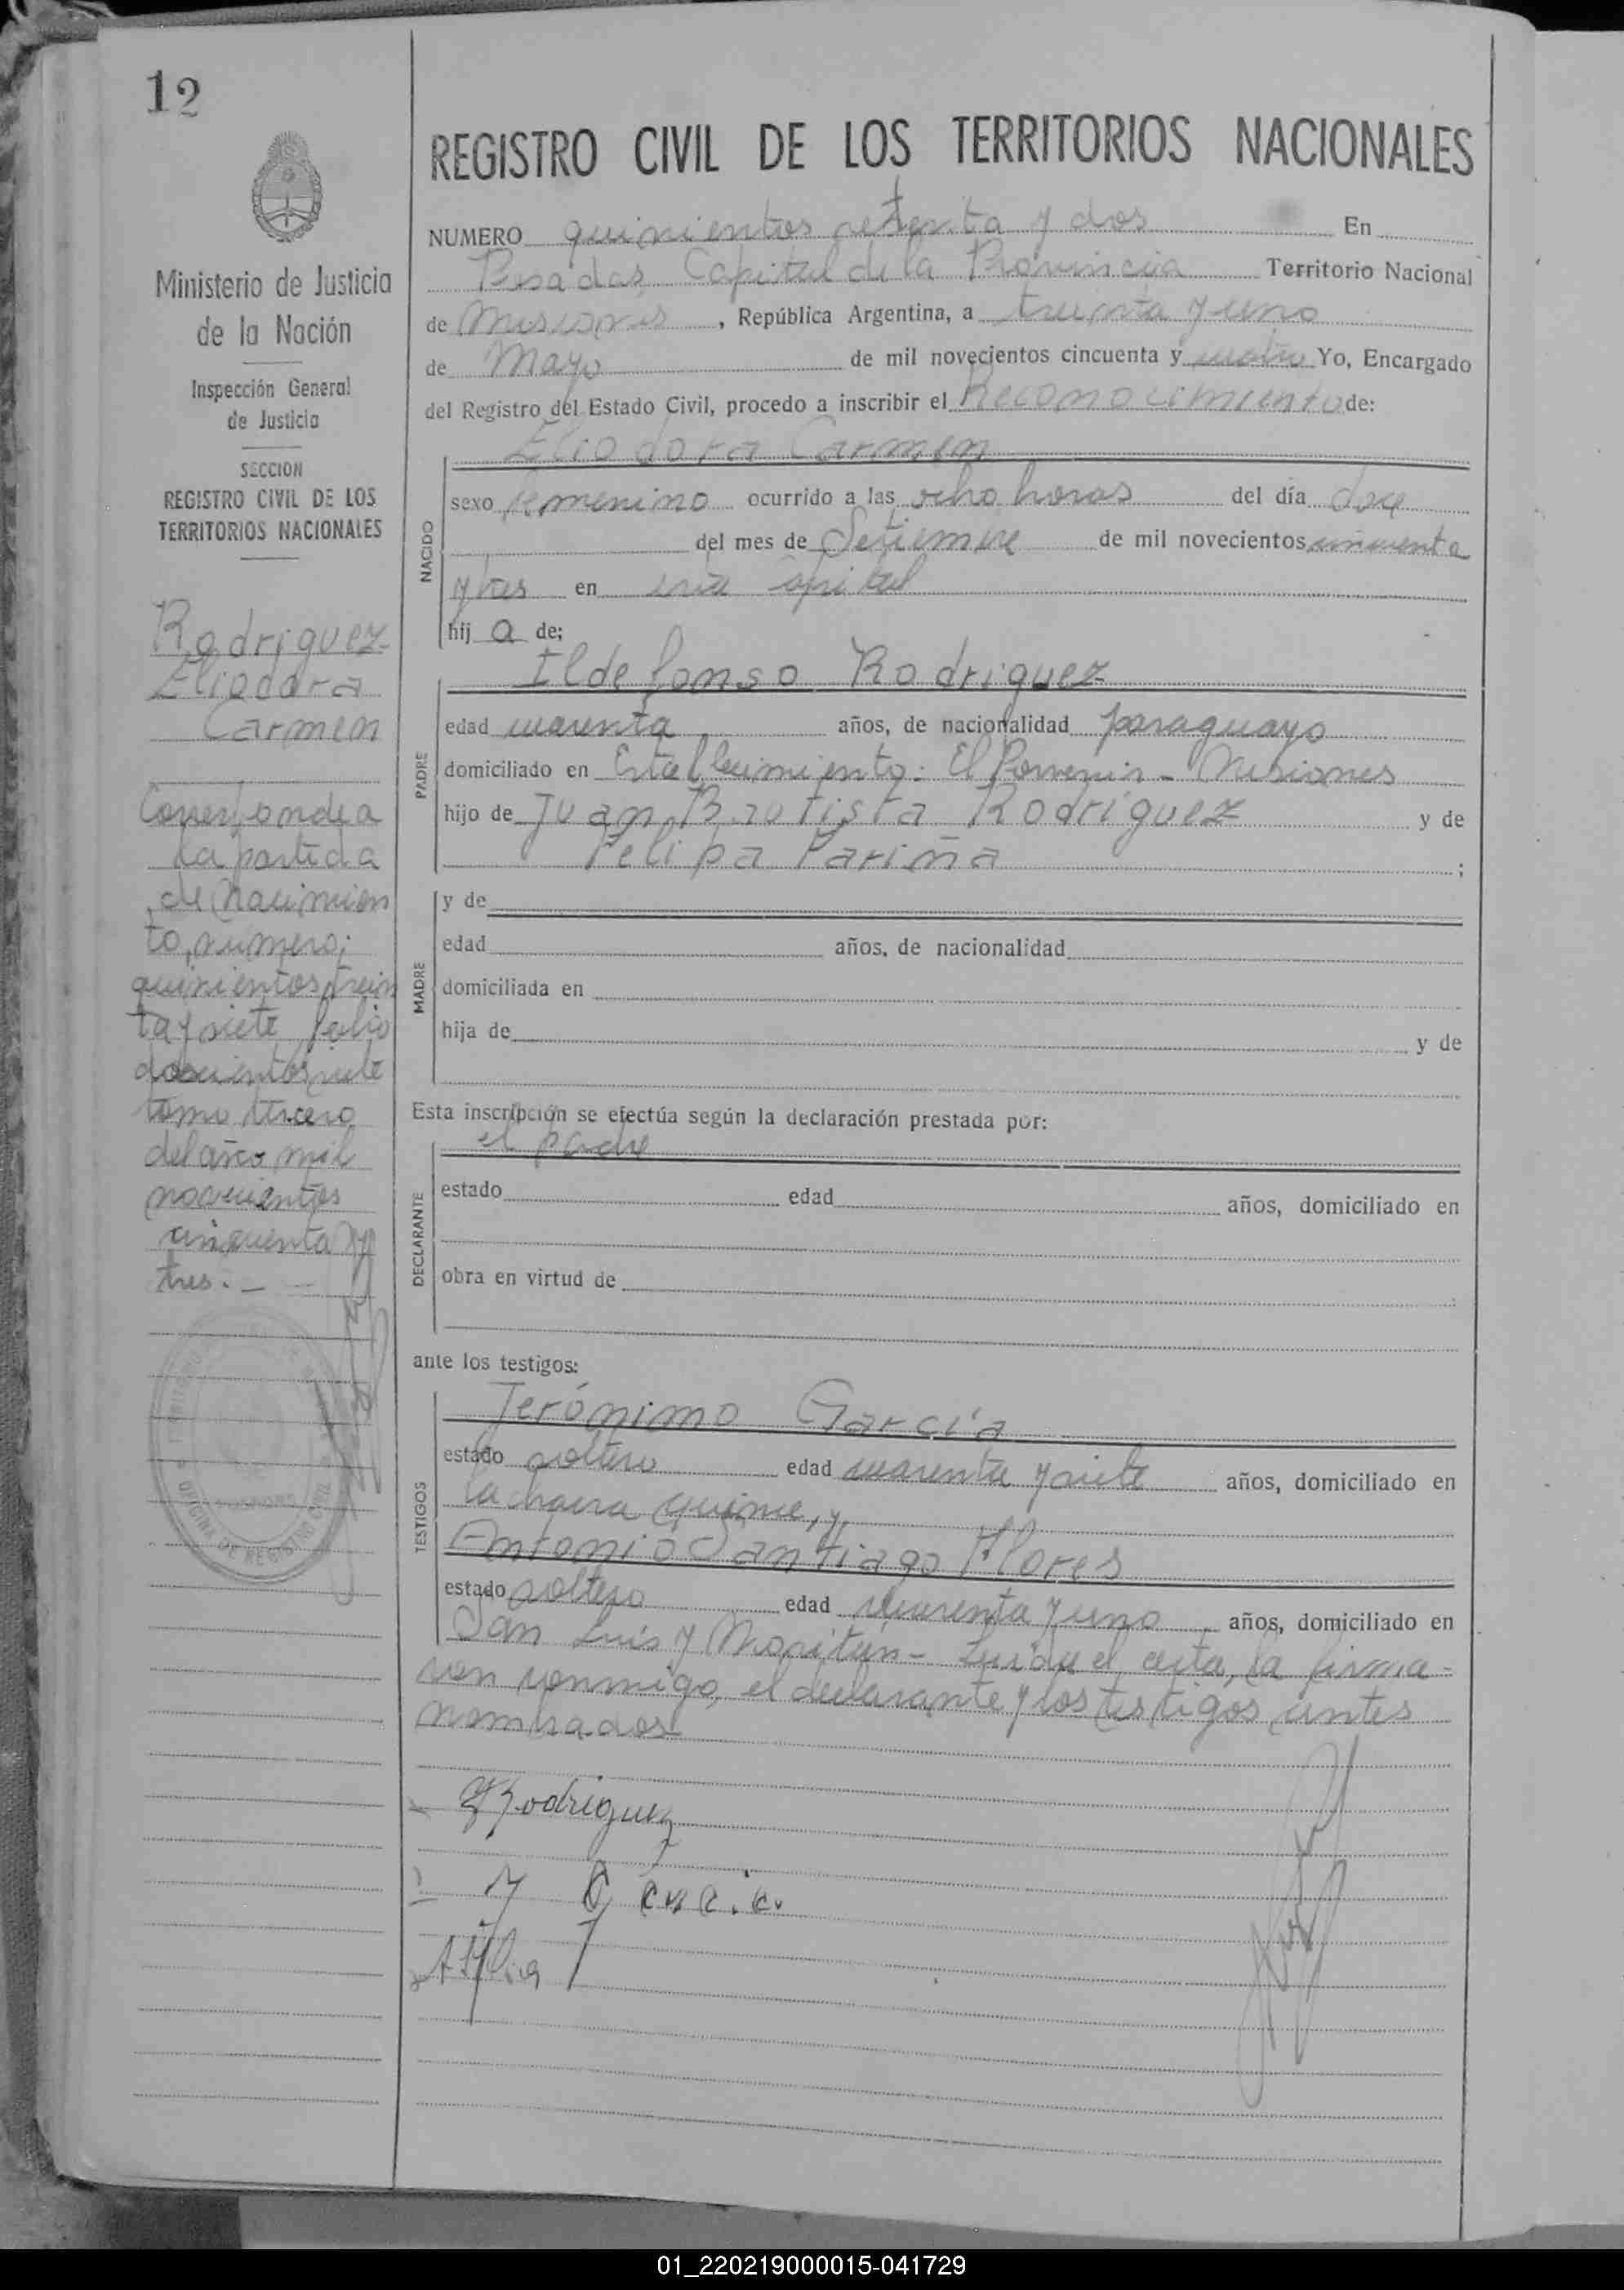 12
Ministerio de Justicia
de la Nación
Inspección General
de Justicia
SECCION
REGISTRO CIVIL DE LOS
TERRITORIOS NACIONALES
Rodriguez
Eliodora
Carmen
Corresponde a
la partida
de nacimien
to, numero;
quinientos trein
ta y siete folio
doscientos siete
tomo tercero
del año mil
novecientos
cincuenta y
tres. —
OFICINA DE REGISTRO CIVIL
REGISTRO CIVIL DE LOS TERRITORIOS NACIONALES
NUMERO quinientos setenta y dos En
Posadas, Capital de la Provincia Territorio Nacional
de Misiones, República Argentina, a treinta y uno
de Mayo de mil novecientos cincuenta y cuatro Yo, Encargado
del Registro del Estado Civil, procedo a inscribir el Reconocimiento de:
Eliodora Carmen
NACIDO
sexo femenino ocurrido a las ocho horas del día doce
del mes de Setiembre de mil novecientos cincuenta
y tres en esta capital
hij a de;
Ildefonso Rodriguez
PADRE
edad cuarenta años, de nacionalidad paraguayo
domiciliado en Establecimiento: El Porvenir - Misiones
hijo de Juan Bautista Rodríguez y de
Felipa Fariña ;
MADRE
y de
edad años, de nacionalidad
domiciliada en
hija de y de
Esta inscripción se efectúa según la declaración prestada por:
el padre
DECLARANTE
estado edad años, domiciliado en
obra en virtud de
ante los testigos:
Jerónimo García
TESTIGOS
estado soltero edad cuarenta y siete años, domiciliado en
la chacra quince, y
Antonio Santiago Flores
estado soltero edad cuarenta y uno años, domiciliado en
San Luis y Moritán - Leida el acta, la firma-
ron conmigo, el declarante y los testigos antes
nombrados
Rodriguez
01_220219000015-041729